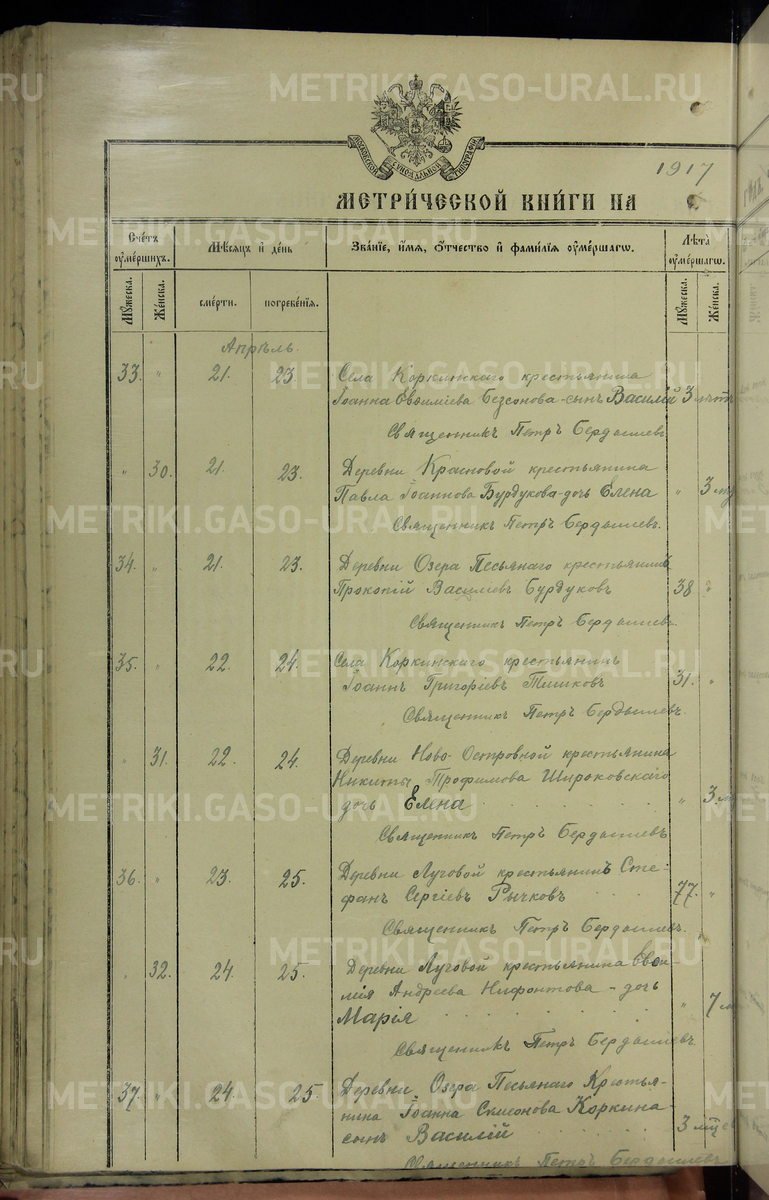 METRIKI.GASO-URAL.RU
МОСКОВСКОЙ СѴНОДАЛЬНОЙ ТИПОГРАФІИ
1917
МЕТРИ́ЧЕСКОЙ КНИ́ГИ НА г.
Сче́тъ ᲂуме́ршихъ.
Мѣ́сяцъ и҆ де́нь
Зва́нїе, и҆́мѧ, ѻ҆́тчество и҆ фами́лїѧ ᲂуме́ршагѡ.
Лѣ́та̀ ᲂуме́ршагѡ.
Мꙋ́жеска.
Же́нска.
сме́рти.
погребе́нїѧ.
Мꙋ́жеска.
Же́нска.
Апрѣль.
33. " 21. 23. Села Коркинскаго крестьянина
Іоанна Евѳиміева Безсонова-сынъ Василій 3
Священникъ Петръ Бердышевъ
" 30. 21. 23. Деревни Красновой крестьянина
Павла Іоаннова Бурдукова-дочь Елена " 3
Священникъ Петръ Бердышевъ.
34. " 21. 23. Деревни Озера Песьянаго крестьянинъ
Прокопій Василіевъ Бурдуковъ 38 "
Священникъ Петръ Бердышевъ.
35. " 22. 24. Села Коркинскаго крестьянинъ
Іоаннъ Григоріевъ Тишковъ 31. "
Священникъ Петръ Бердышевъ.
" 31. 22. 24. Деревни Ново-Островной крестьянина
Никиты Трофимова Широковскаго
дочь Елена " 3
Священникъ Петръ Бердышевъ
36. " 23. 25. Деревни Луговой крестьянинъ Сте-
фанъ Сергіевъ Рычковъ 77. "
Священникъ Петръ Бердышевъ.
" 32. 24. 25. Деревни Луговой крестьянина Евѳи-
мія Андреева Нифонтова - дочь
Марія " 7
Священникъ Петръ Бердышевъ
37. " 24. 25. Деревни Озера Песьянаго Крестья-
нина Іоанна Симеонова Коркина
сынъ Василій 3
Священникъ Петръ Бердышевъ.